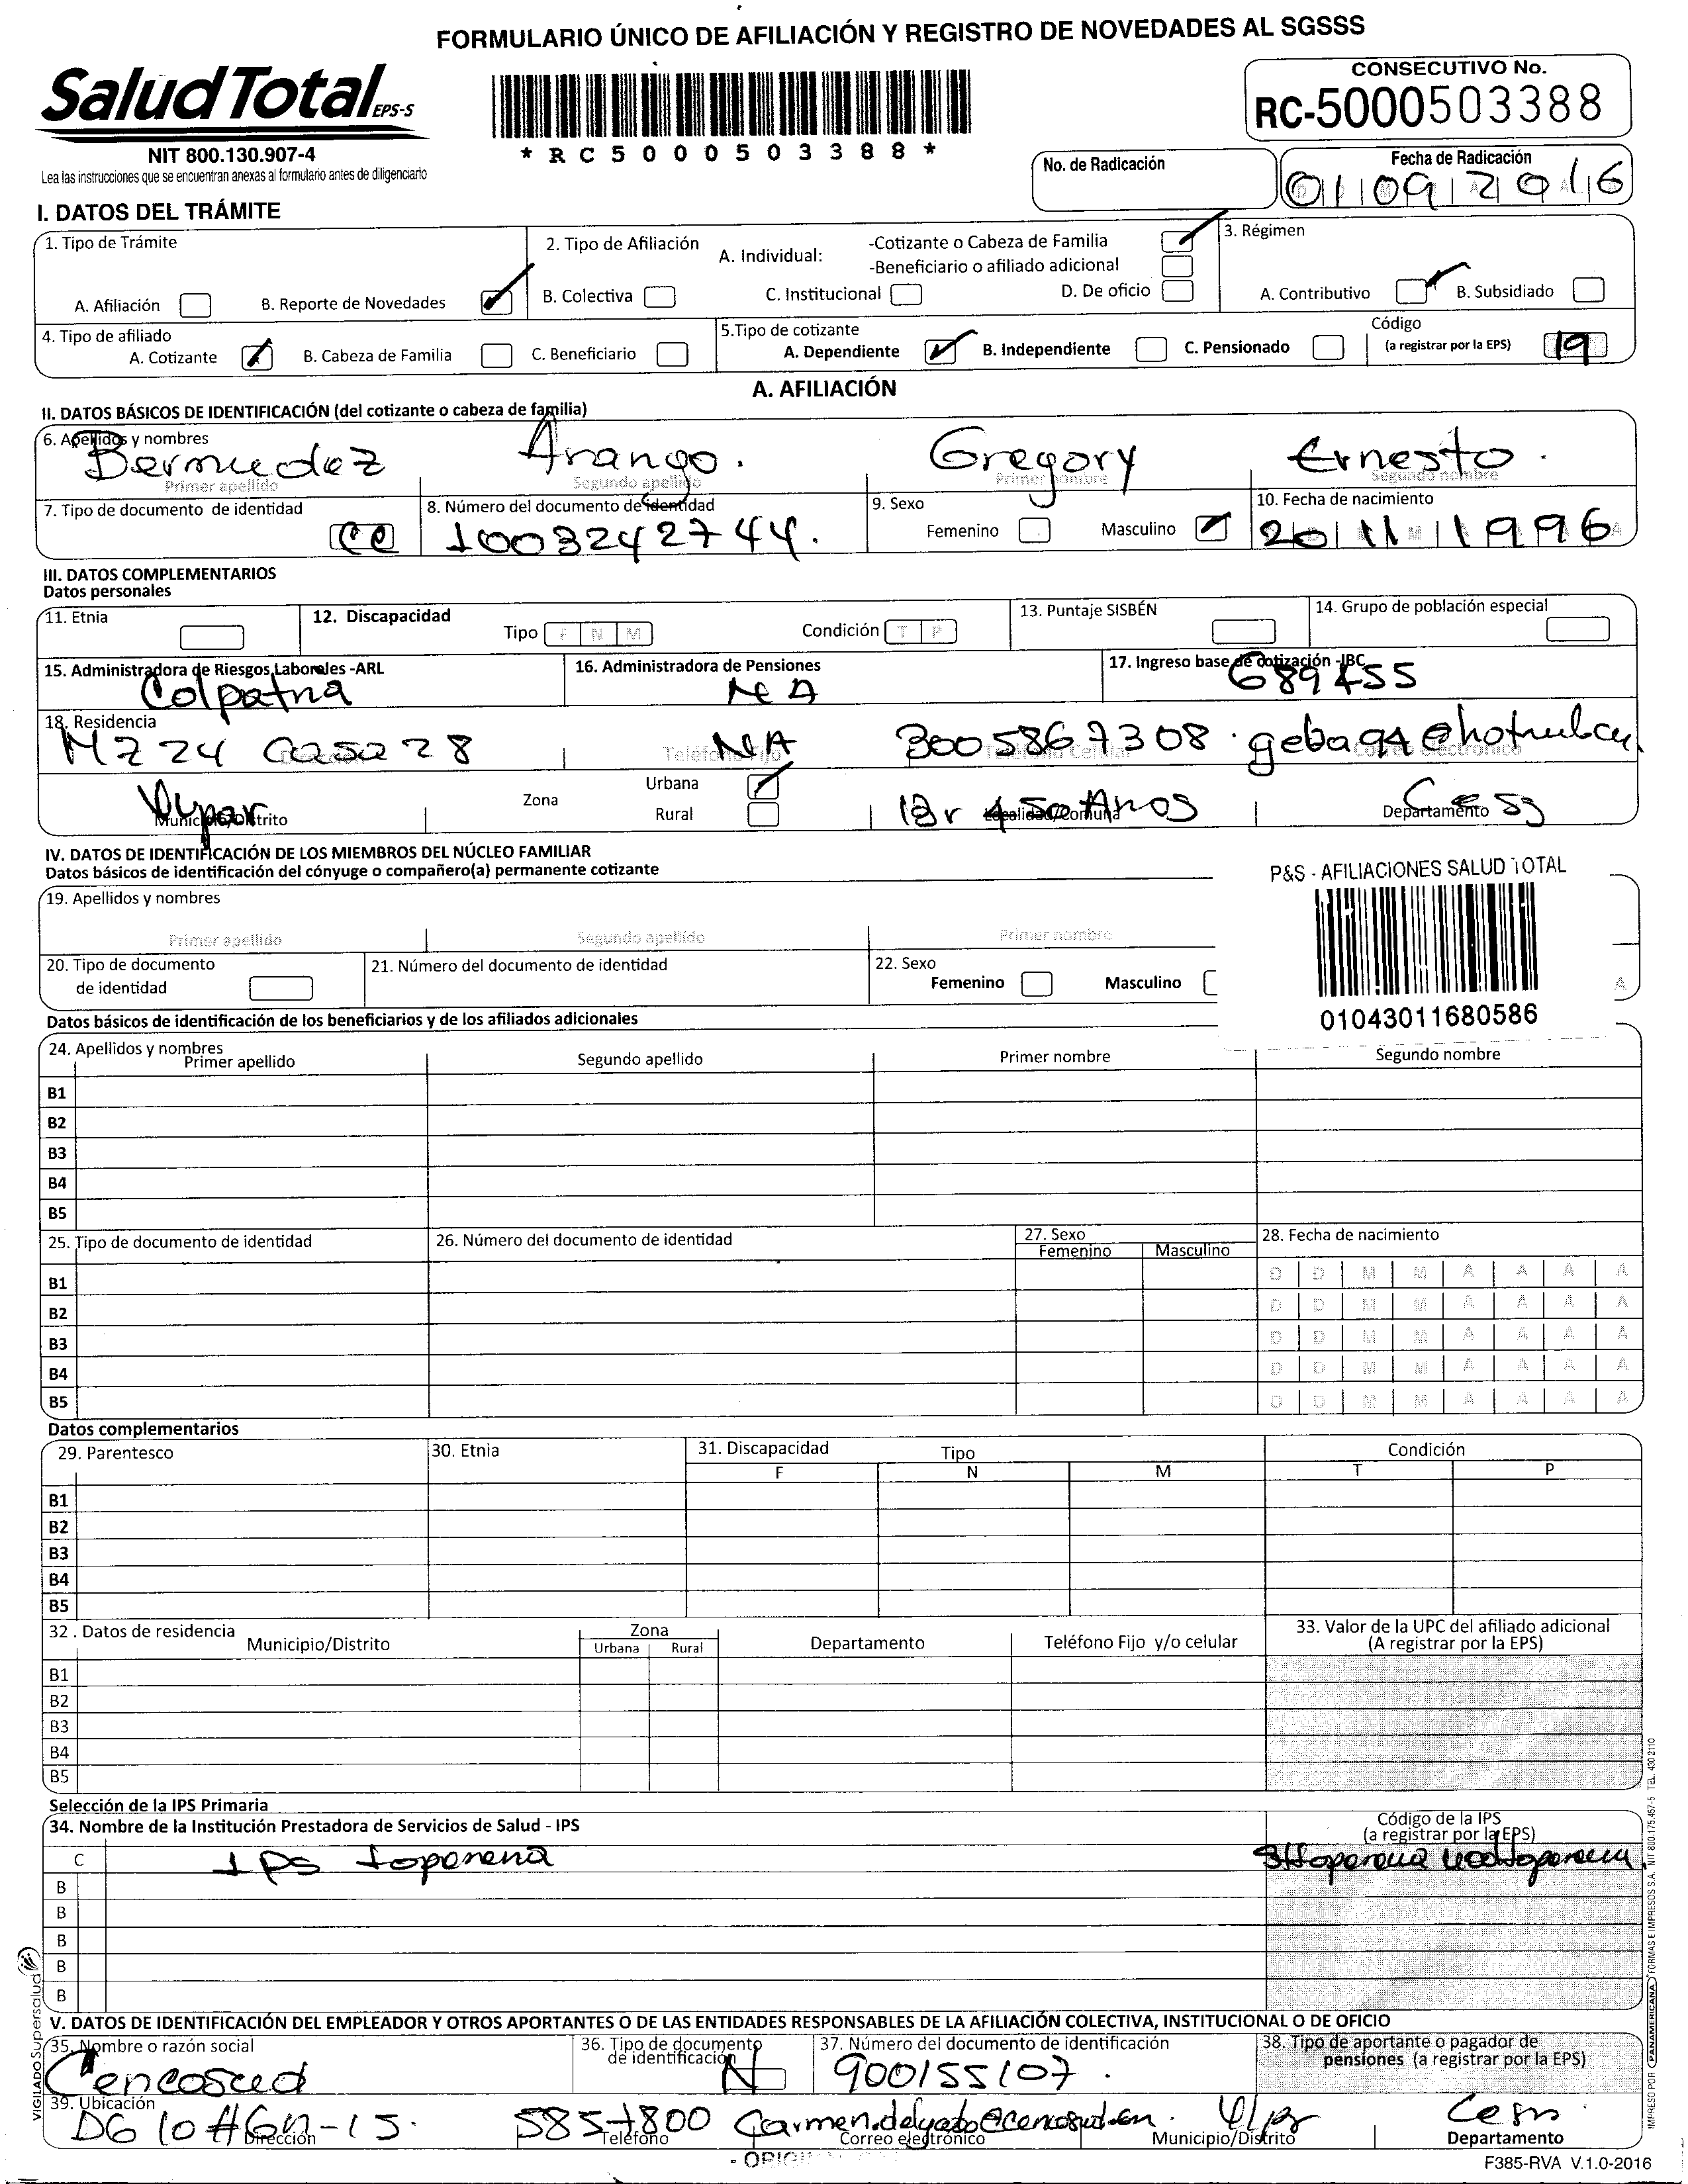 FORMULARIO ÚNICO DE AFILIACIÓN Y REGISTRO DE NOVEDADES AL SGSSS
SaludTotal EPS-S
NIT 800.130.907-4
Lea las instrucciones que se encuentran anexas al formulario antes de diligenciarlo
*RC5000503388*
CONSECUTIVO No.
RC-5000503388
No. de Radicación
Fecha de Radicación
01 09 2016
I. DATOS DEL TRÁMITE
1. Tipo de Trámite
A. Afiliación B. Reporte de Novedades
2. Tipo de Afiliación A. Individual: -Cotizante o Cabeza de Familia
-Beneficiario o afiliado adicional
B. Colectiva C. Institucional D. De oficio
3. Régimen
A. Contributivo B. Subsidiado
4. Tipo de afiliado
A. Cotizante B. Cabeza de Familia C. Beneficiario
5.Tipo de cotizante
A. Dependiente B. Independiente C. Pensionado
Código
(a registrar por la EPS) 19
A. AFILIACIÓN
II. DATOS BÁSICOS DE IDENTIFICACIÓN (del cotizante o cabeza de familia)
6. Apellidos y nombres
Bermudez Arango. Gregory Ernesto.
Primer apellido Segundo apellido Primer nombre Segundo nombre
7. Tipo de documento de identidad CC
8. Número del documento de identidad
1003242744.
9. Sexo
Femenino Masculino
10. Fecha de nacimiento
20 11 1996
III. DATOS COMPLEMENTARIOS
Datos personales
11. Etnia 12. Discapacidad Tipo F N M Condición T P 13. Puntaje SISBÉN 14. Grupo de población especial
15. Administradora de Riesgos Laborales -ARL
Colpatria
16. Administradora de Pensiones
NA
17. Ingreso base de cotización -IBC
689455
18. Residencia
MZ 24 Casa 28 NA 3005867308
Teléfono Fijo Teléfono Celular Correo electrónico
Vupar Zona Urbana
Rural
Br 450 Años
Municipio/Distrito Localidad/Comuna Departamento
IV. DATOS DE IDENTIFICACIÓN DE LOS MIEMBROS DEL NÚCLEO FAMILIAR
Datos básicos de identificación del cónyuge o compañero(a) permanente cotizante
P&S - AFILIACIONES SALUD TOTAL
01043011680586
19. Apellidos y nombres
Primer apellido Segundo apellido Primer nombre
20. Tipo de documento
de identidad
21. Número del documento de identidad
22. Sexo
Femenino Masculino
A
Datos básicos de identificación de los beneficiarios y de los afiliados adicionales
24. Apellidos y nombres
Primer apellido Segundo apellido Primer nombre Segundo nombre
B1
B2
B3
B4
B5
25. Tipo de documento de identidad 26. Número del documento de identidad 27. Sexo 28. Fecha de nacimiento
Femenino Masculino
B1 D D M M A A A A
B2 D D M M A A A A
B3 D D M M A A A A
B4 D D M M A A A A
B5 D D M M A A A A
Datos complementarios
29. Parentesco 30. Etnia 31. Discapacidad Tipo Condición
F N M T P
B1
B2
B3
B4
B5
32. Datos de residencia
Municipio/Distrito Zona Departamento Teléfono Fijo y/o celular
Urbana Rural
33. Valor de la UPC del afiliado adicional
(A registrar por la EPS)
B1
B2
B3
B4
B5
Selección de la IPS Primaria
34. Nombre de la Institución Prestadora de Servicios de Salud - IPS
Código de la IPS
(a registrar por la EPS)
C IPS Loperena
B
B
B
B
B
V. DATOS DE IDENTIFICACIÓN DEL EMPLEADOR Y OTROS APORTANTES O DE LAS ENTIDADES RESPONSABLES DE LA AFILIACIÓN COLECTIVA, INSTITUCIONAL O DE OFICIO
35. Nombre o razón social
Cencosud
36. Tipo de documento
de identificación
N
37. Número del documento de identificación
900155107.
38. Tipo de aportante o pagador de
pensiones (a registrar por la EPS)
39. Ubicación
DG 10 #6N-15. 5857800
Dirección Teléfono Correo electrónico Municipio/Distrito Departamento
F385-RVA V.1.0-2016
VIGILADO Supersalud
IMPRESO POR PANAMERICANA FORMAS E IMPRESOS S.A. NIT 800.175.457-5 TEL. 430 2110